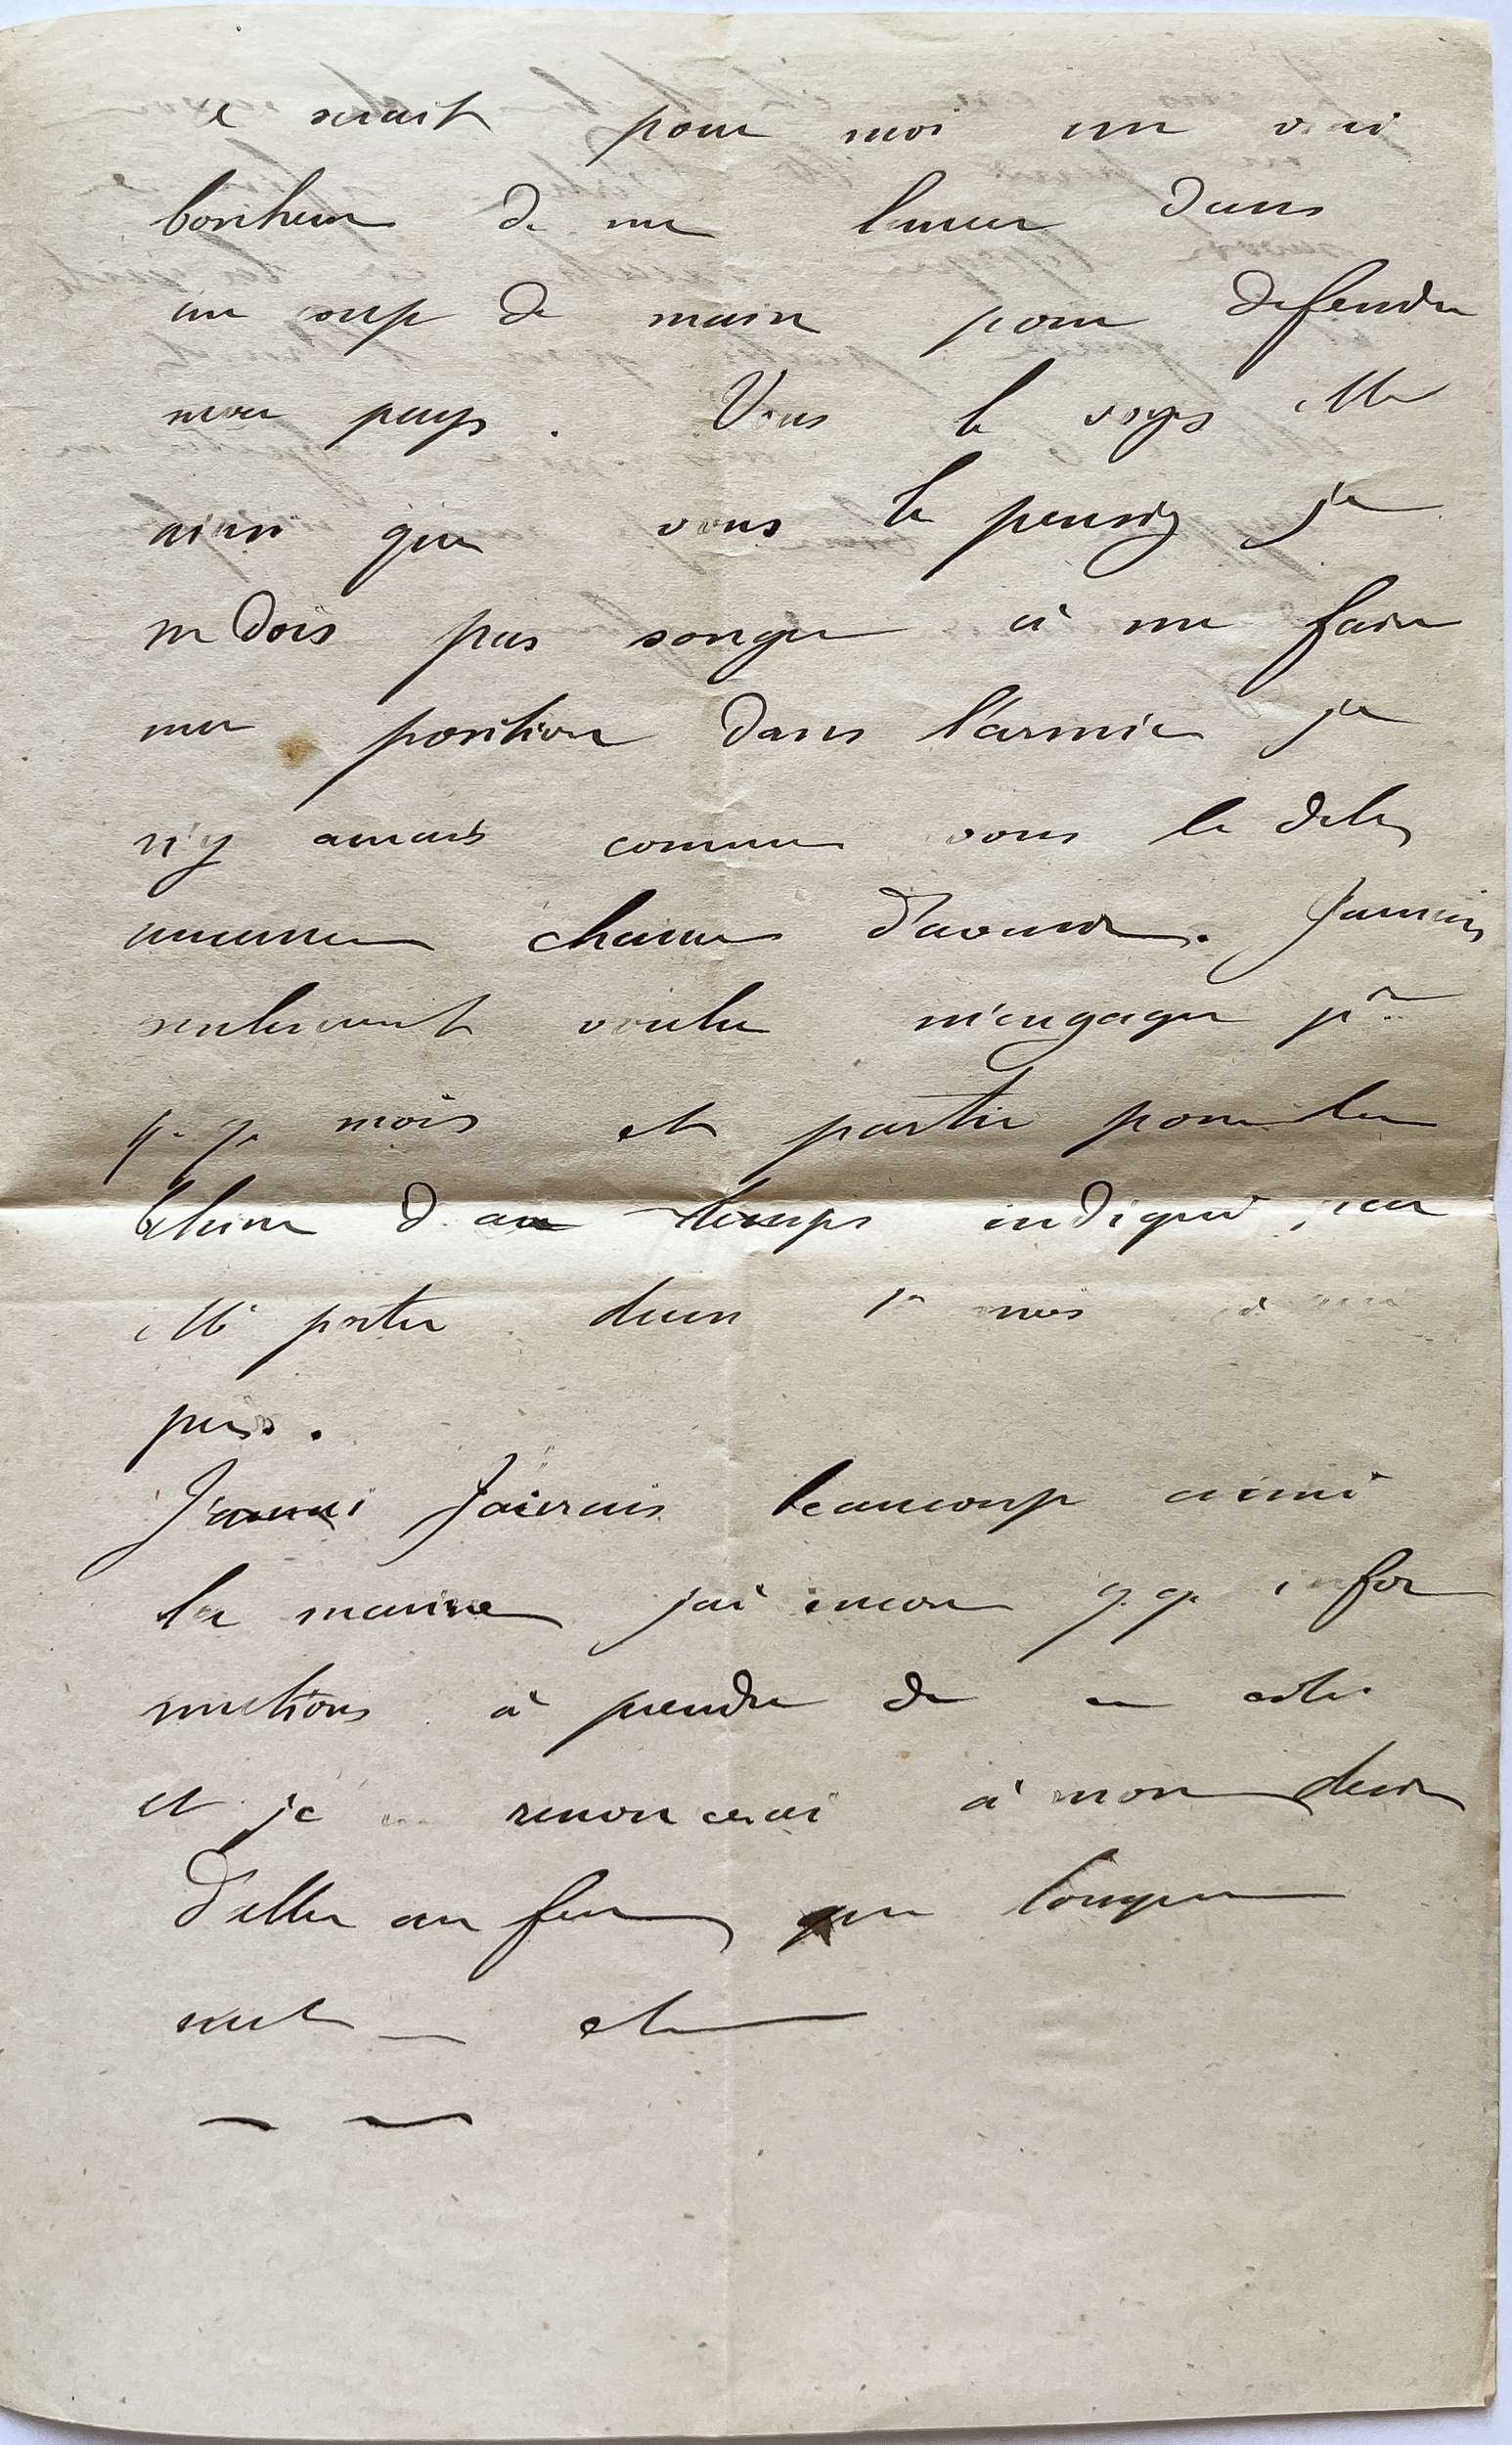 ce serait pour moi un vrai
bonheur de me lancer dans
un coup de main pour defendre
mon pays. Vous le voyez Mr
ainsi que vous le pensiez je
ne dois pas songer à me faire
ma position dans l'armée je
n'y aurais comme vous le dites
aucune chance d'avenir. J'aurais
seulement voulu m'engager pr
q.q. mois et partir pour la
au temps indiqué, car
Mr dans 1er mois
pas.
J'aurai J'aierais beaucoup aimé
la marine j'ai encore q.q. infor
mations à prendre de ce coté
et je renoncerai à mon desir
d'aller au feu que lorsque
et